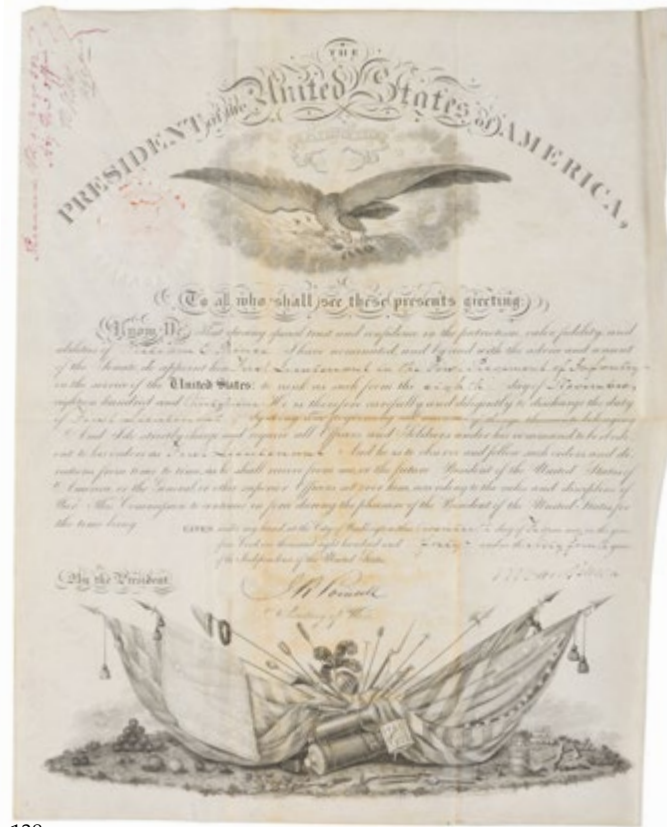 THE
PRESIDENT of the United States of AMERICA,
To all who shall see these presents greeting
Know Ye That reposing special trust and confidence in the patriotism, valor, fidelity and
abilities of I have nominated, and by and with the advice and consent
of the Senate, do appoint him First Lieutenant in the First Regiment of Infantry
in the service of the United States: to rank as such from the eighth day of November
eighteen hundred and He is therefore carefully and diligently to discharge the duty
of First Lieutenant by doing and performing all manner of things thereunto belonging
And I do strictly charge and require all Officers and Soldiers under his command to be obedi-
ent to his orders as First Lieutenant And he is to observe and follow such orders and di-
rections from time to time, as he shall receive from me, or the future President of the United States of
America, or the General or other superior Officers set over him, according to the rules and discipline of
War. This Commission to continue in force during the pleasure of the President of the United States for
the time being
GIVEN under my hand at the City of Washington this day of in the year
of our Lord one thousand eight hundred and forty and in the sixty fourth year
of the Independence of the United States
By the President
J R Poinsett
Secretary of War